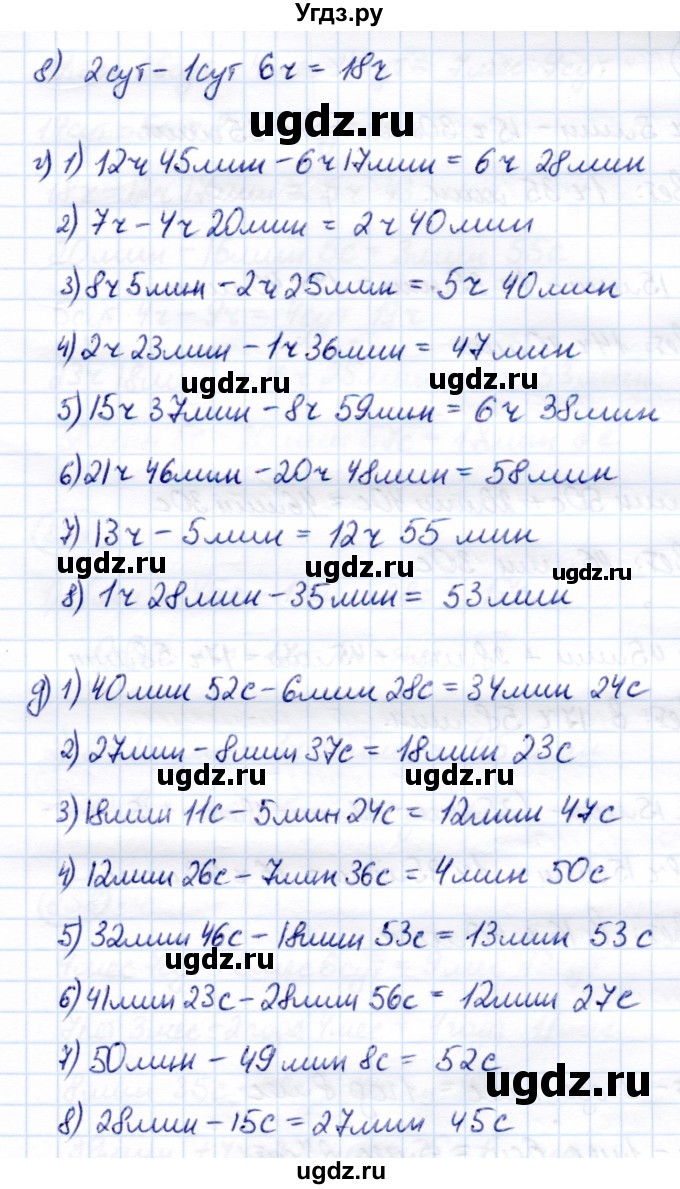 Угдз.ру
8) 2сут - 1сут 6ч = 18ч
ugdz.ru
г) 1) 12ч 45мин - 6ч 17мин = 6ч 28мин
2) 7ч - 4ч 20мин = 2ч 40мин
3) 8ч 5мин - 2ч 25мин = 5ч 40мин
4) 2ч 23мин - 1ч 36мин = 47мин
ugdz.ru ugdz.ru
5) 15ч 37мин - 8ч 59мин = 6ч 38мин
6) 21ч 46мин - 20ч 48мин = 58мин
7) 13ч - 5мин = 12ч 55мин
ugdz.ru ugdz.ru ugdz.ru
8) 1ч 28мин - 35мин = 53мин
д) 1) 40мин 52с - 6мин 28с = 34мин 24с
2) 27мин - 8мин 37с = 18мин 23с
ugdz.ru ugdz.ru
3) 18мин 11с - 5мин 24с = 12мин 47с
4) 12мин 26с - 7мин 36с = 4мин 50с
5) 32мин 46с - 18мин 53с = 13мин 53с
ugdz.ru
6) 41мин 23с - 28мин 56с = 12мин 27с
7) 50мин - 49мин 8с = 52с
ugdz.ru
8) 28мин - 15с = 27мин 45с
ugdz.ru